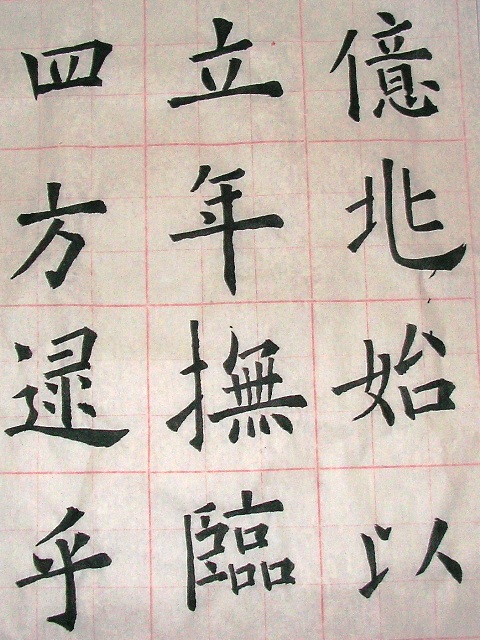 四方逮乎
立年撫臨
億兆始以